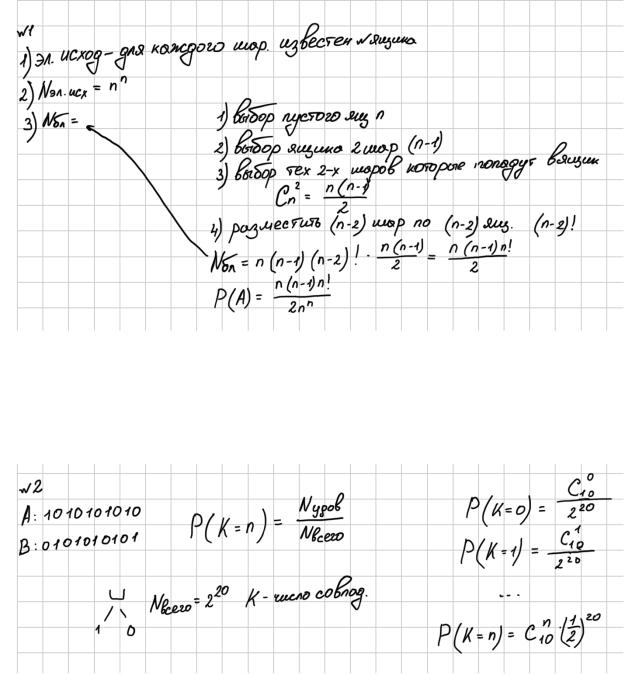 №1
1) эл. исход – для каждого шар. известен № ящика
2) Nэл.исх = nⁿ
3) Nбл =
1) выбор пустого ящ n
2) выбор ящика 2 шар (n-1)
3) выбор тех 2-х шаров которые попадут в ящик
Cₙ² = n(n-1)/2
4) разместить (n-2) шар по (n-2) ящ. (n-2)!
Nбл = n(n-1)(n-2)! · n(n-1)/2 = n(n-1)n!/2
P(A) = n(n-1)n!/2nⁿ
№2
A: 1010101010
B: 0101010101
P(K=n) = Nуров/Nвсего
1 0
Nвсего = 2²⁰ K – число совпад.
P(K=0) = C₁₀⁰/2²⁰
P(K=1) = C₁₀¹/2²⁰
...
P(K=n) = C₁₀ⁿ · (1/2)²⁰